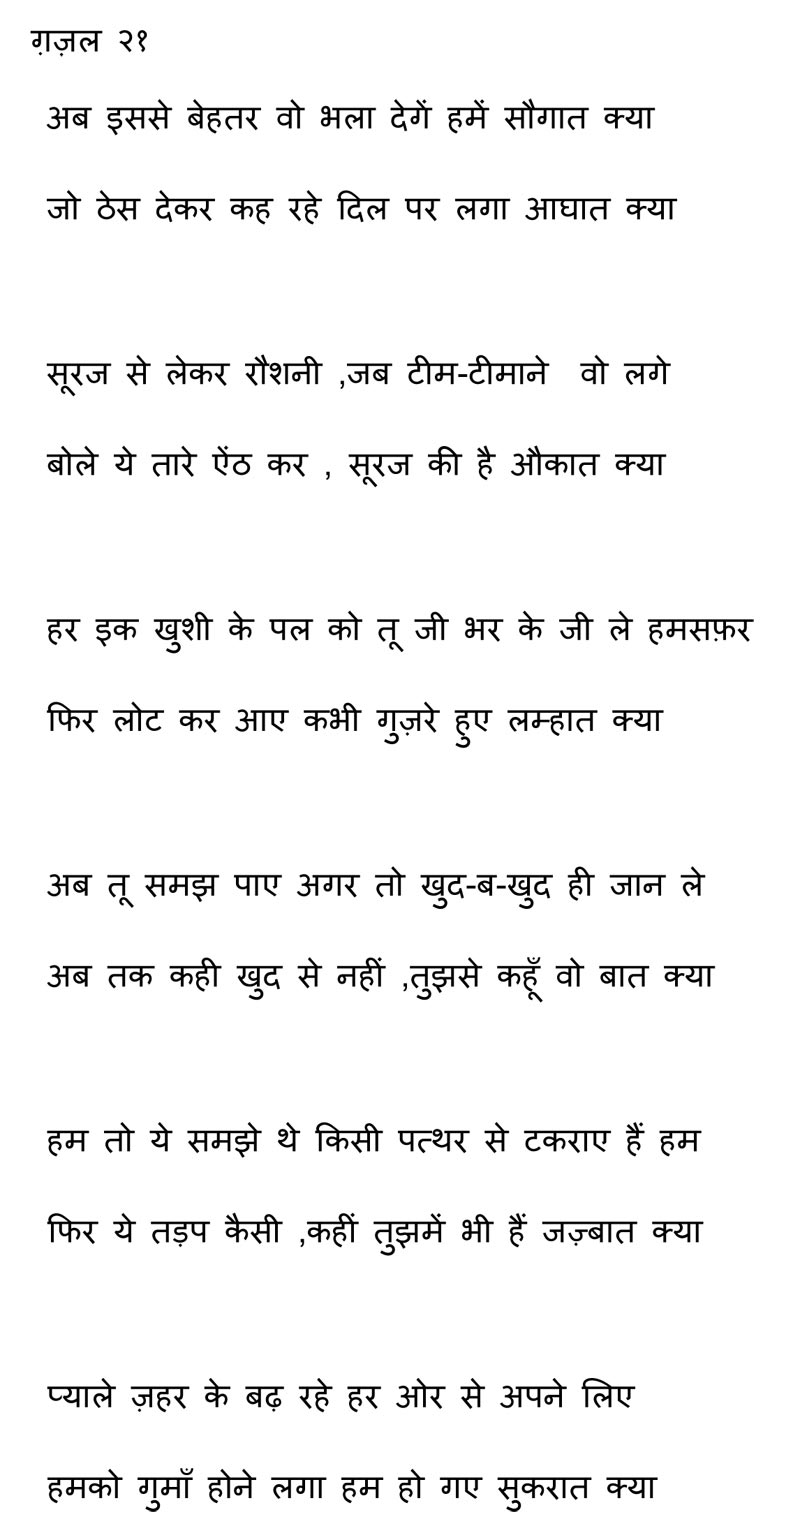 ग़ज़ल २१
अब इससे बेहतर वो भला देगें हमें सौगात क्या
जो ठेस देकर कह रहे दिल पर लगा आघात क्या
सूरज से लेकर रौशनी ,जब टीम-टीमाने वो लगे
बोले ये तारे ऐंठ कर , सूरज की है औकात क्या
हर इक खुशी के पल को तू जी भर के जी ले हमसफ़र
फिर लोट कर आए कभी गुज़रे हुए लम्हात क्या
अब तू समझ पाए अगर तो खुद-ब-खुद ही जान ले
अब तक कही खुद से नहीं ,तुझसे कहूँ वो बात क्या
हम तो ये समझे थे किसी पत्थर से टकराए हैं हम
फिर ये तड़प कैसी ,कहीं तुझमें भी हैं जज़्बात क्या
प्याले ज़हर के बढ़ रहे हर ओर से अपने लिए
हमको गुमाँ होने लगा हम हो गए सुकरात क्या